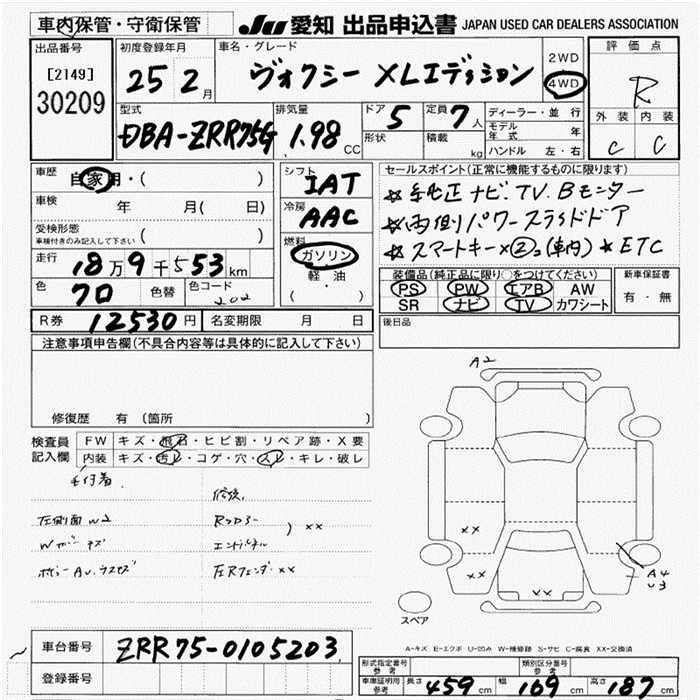 車内保管・守衛保管 JU 愛知 出品申込書 JAPAN USED CAR DEALERS ASSOCIATION
出品番号 初度登録年月 車名・グレード 2WD 評価点
[2149] 25 2月 ヴォクシー XLエディション 4WD R
30209 外装 内装
型式 排気量 ドア 5 定員 7人 ディーラー・並行 C C
DBA-ZRR75G 1.98CC 形状 積載 kg モデル年式 年
ハンドル 左・右
車歴 自家用・( ) シフト IAT セールスポイント(正常に機能するものに限ります)
車検 年 月( 日) 冷房 AAC ☆純正ナビ.TV.Bモニター
受検形態 車検付きのみ記入して下さい ( ) ☆両側パワースライドドア
燃料 ガソリン 軽・油 (・) ☆スマートキー×②(車内) ☆ETC
走行 18万9千553km
色 クロ 色替 色コード 202
装備品(純正品に限り○をつけてください) 新車保証書
PS PW エアB AW 有・無
SR ナビ TV カワシート
R券 12530円 名変期限 月 日 後日品
注意事項申告欄(不具合内容等は具体的に記入して下さい)
修復歴 有 (箇所 )
検査員記入欄 FW キズ・飛石・ヒビ割・リペア跡・X要
内装 キズ・汚レ・コゲ・穴・スレ・キレ・破レ
左側面 W2
××
エンドパネル
左Rフェンダー ××
A2
××
××
××
A4
U3
スペア
A-キズ E-エクボ U-凹み W-補修跡 S-サビ C-腐食 XX-交換済
車台番号 ZRR75-0105203
登録番号
形式指定番号 参考 類別区分番号 参考
車庫証明用 参考 長さ 459cm 幅 169cm 高さ 187cm